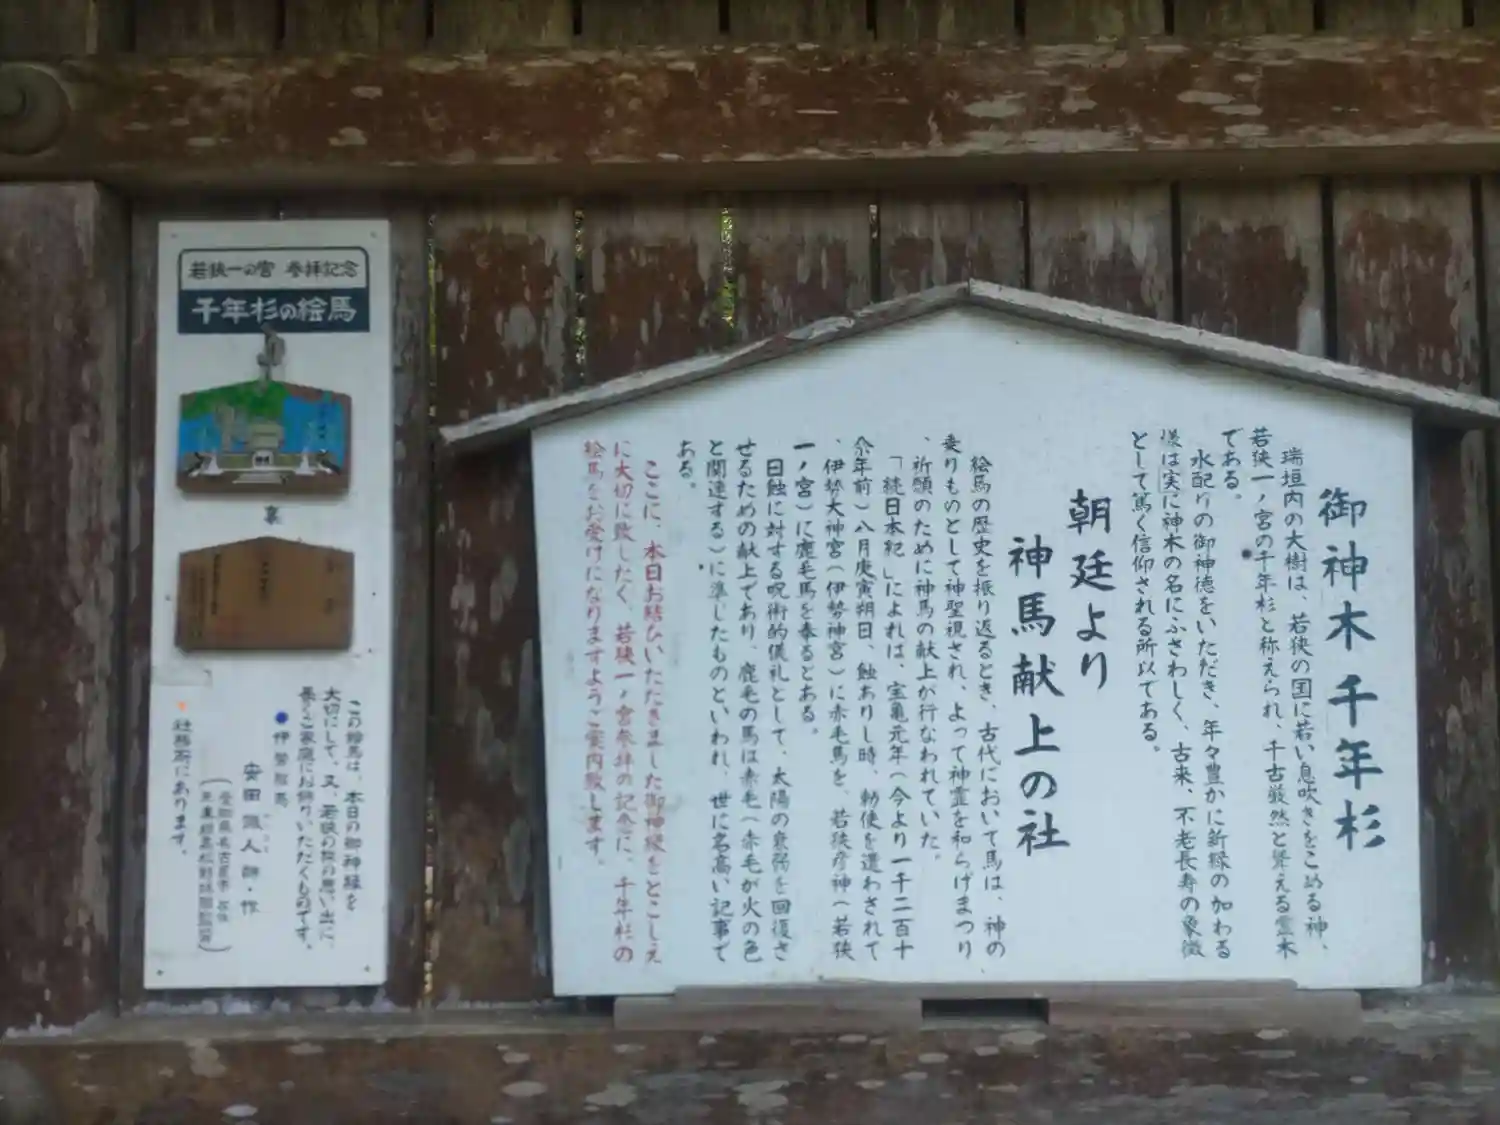 御神木千年杉
瑞垣内の大樹は、若狭の国に若い息吹きをこめる神、
若狭一ノ宮の千年杉と称えられ、千古厳然と聳える霊木
である。
水配りの御神徳をいただき、年々豊かに新緑の加わる
様は実に神木の名にふさわしく、古来、不老長寿の象徴
として篤く信仰される所以である。
朝廷より
神馬献上の社
絵馬の歴史を振り返るとき、古代において馬は、神の
乗りものとして神聖視され、よって神霊を和らげまつり
、祈願のために神馬の献上が行なわれていた。
「続日本紀」によれば、宝亀元年(今より一千二百十
余年前)八月庚寅朔日、蝕ありし時、勅使を遣わされて
、伊勢大神宮(伊勢神宮)に赤毛馬を、若狭彦神(若狭
一ノ宮)に鹿毛馬を奉るとある。
日蝕に対する呪術的儀礼として、太陽の衰弱を回復さ
せるための献上であり、鹿毛の馬は赤毛(赤毛が火の色
と関連する)に準じたものといわれ、世に名高い記事で
ある。
ここに、本日お結びいただきました御神縁をとこしえ
に大切に致したく、若狭一ノ宮参拝の記念に、千年杉の
絵馬をお受けになりますようご案内致します。
若狭一の宮 参拝記念
千年杉の絵馬
裏
この絵馬は、本日の御神縁を
大切にして、又、若狭の旅の思い出に、
長くご家庭にお飾りいただくものです。
安田 人師・作
社務所にあります。